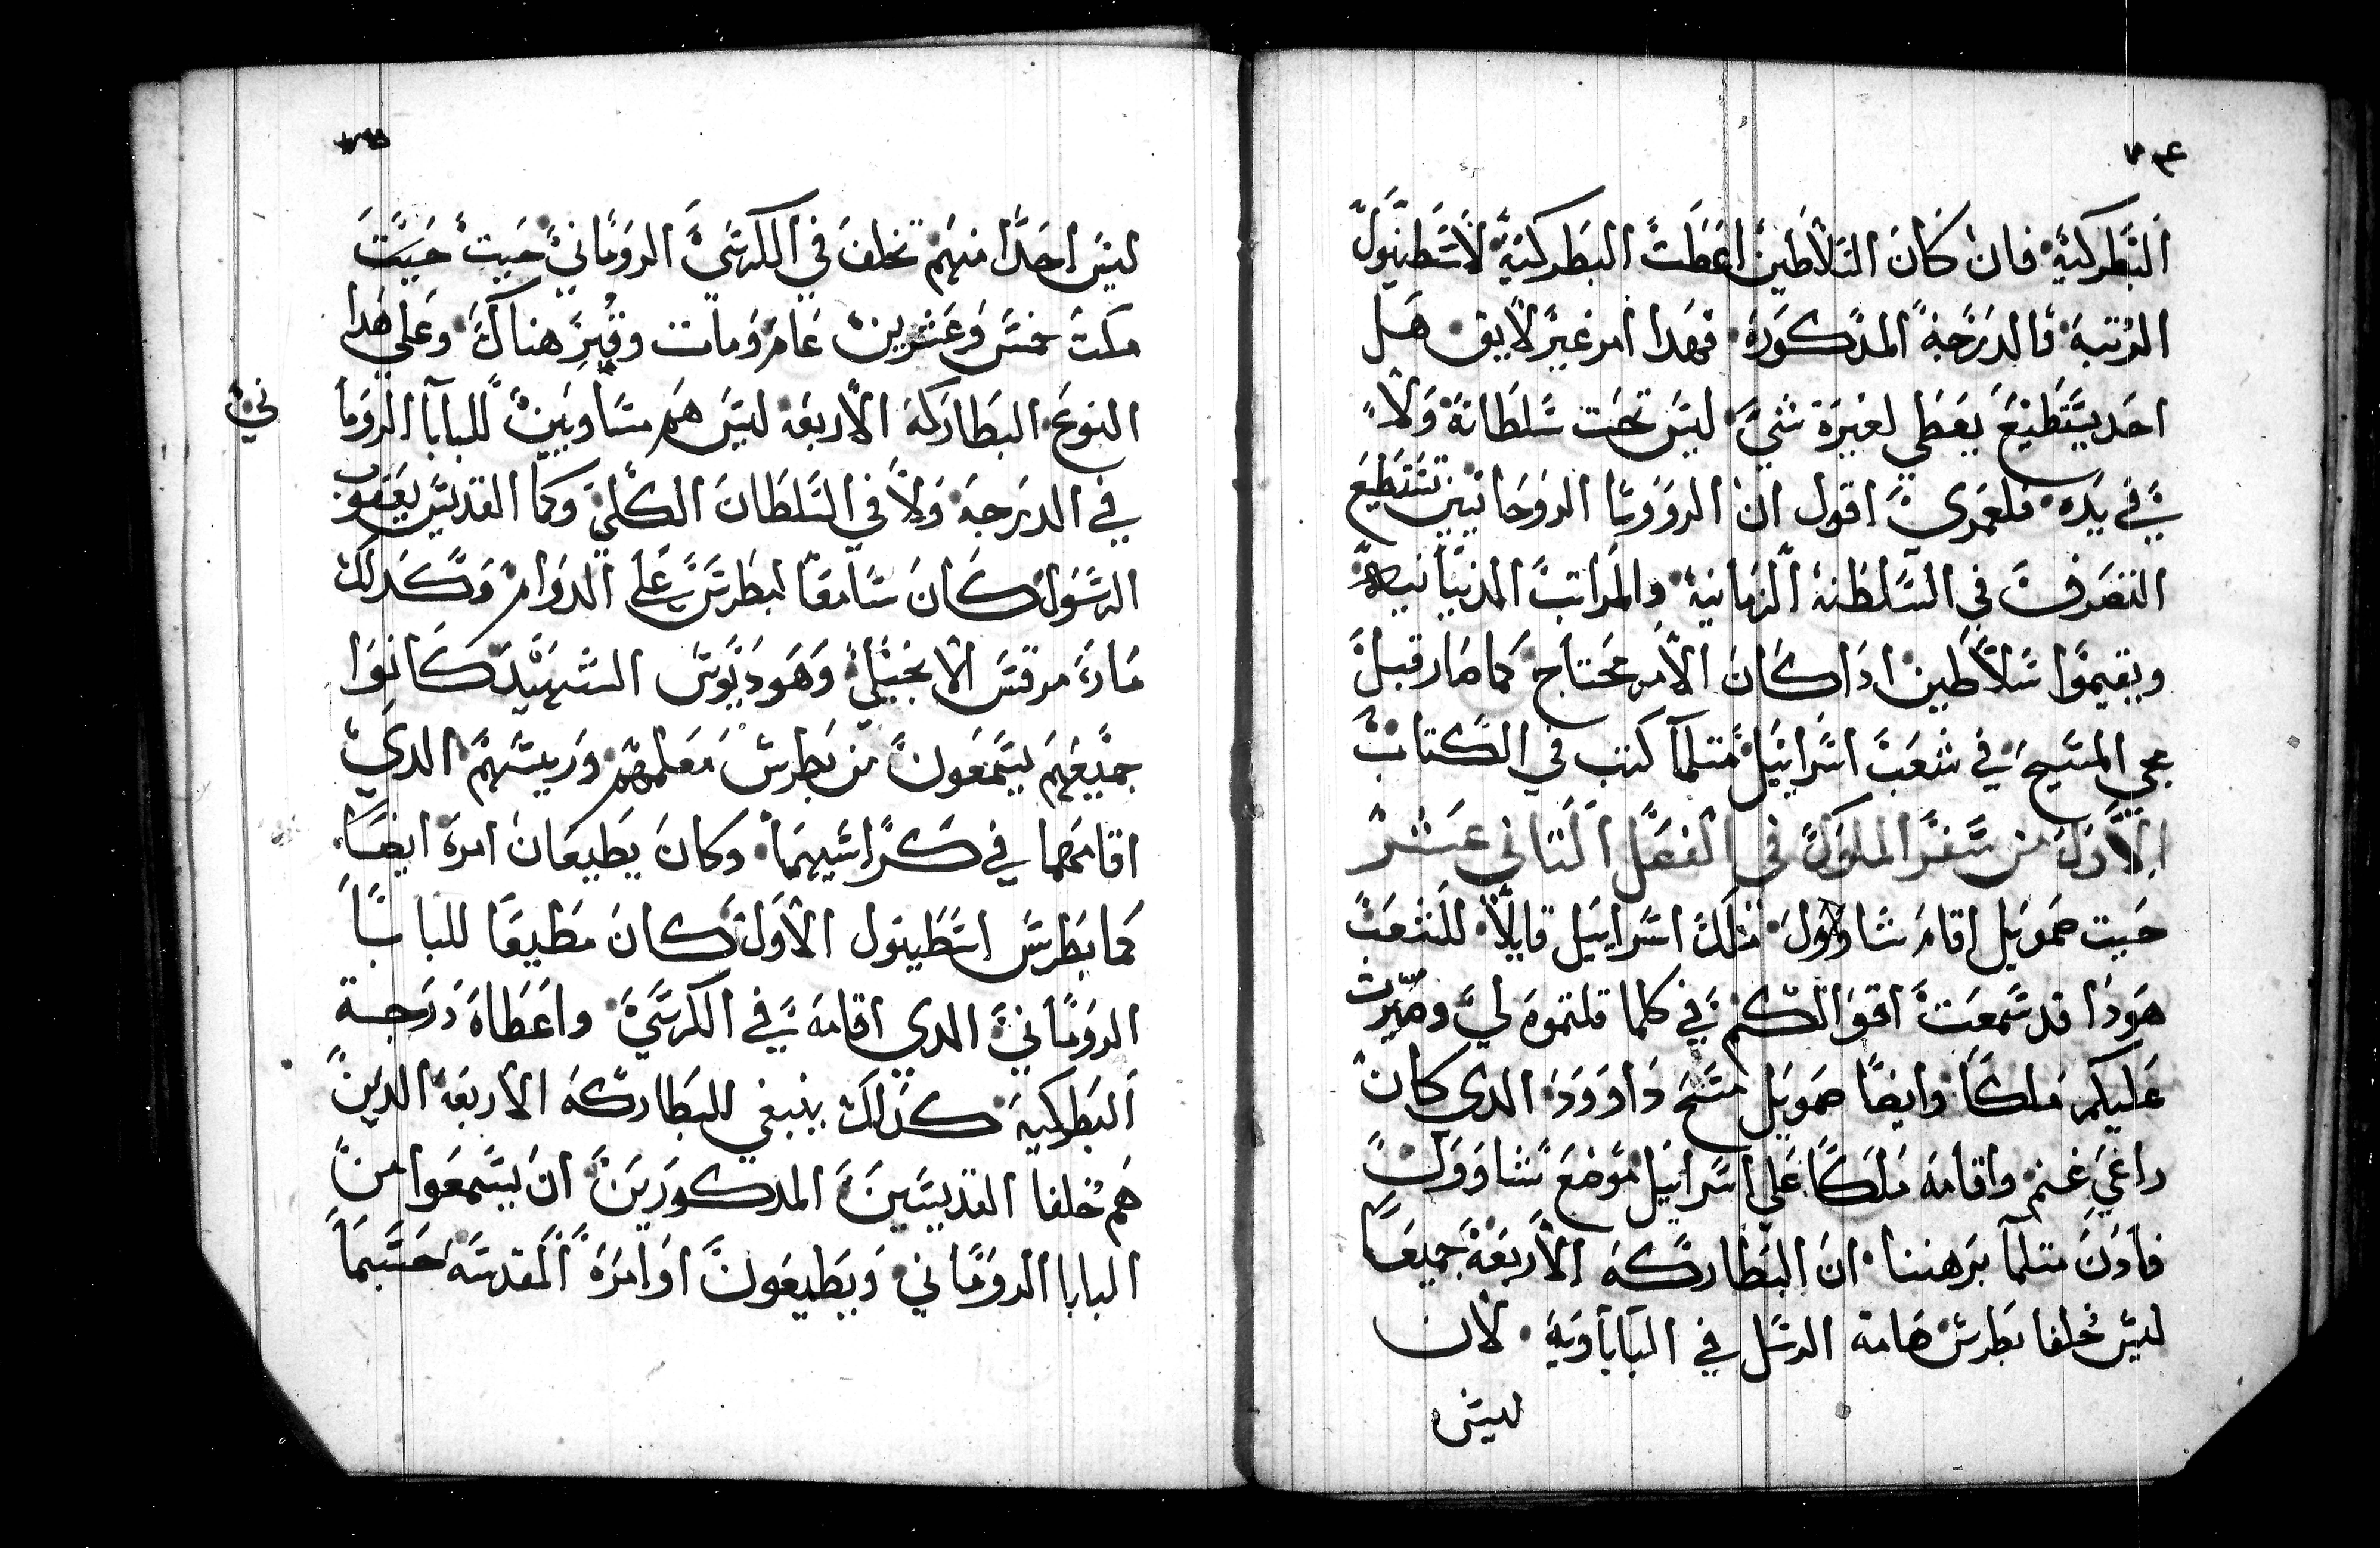 البطركية فان كان السلاطين اعطت البطركية لاسطنبول
الرتبة والدرجة المدكورة فهدا امر غير لايق هل
احد يستطيع يعطي لغيره شي ليس تحت سلطانه ولا
في يده فلعمري اقول ان الرووسا الروحانيين تستطيع
التصرف في السلطنة الزمانية والمراتب الدنيانية
ويقيموا سلاطين ادا كان الامر محتاج كما صار قبل
مجي المسيح في شعب اسراييل متلما كتب في الكتاب
الاول من سفر الملوك في الفصل التاني عشر
حيت صمويل اقام شاوول ملك اسراييل قايلا للشعب
هودا قد سمعت اقوالكم في كلما قلتموه لي وصيرت
عليكم ملكا وايضا صمويل مسح داوود الدي كان
راعي غنم واقامه ملكا على اسراييل موضع شاوول
فادن متلما برهننا ان البطاركه الاربعة جميعا
ليس خلفا بطرس هامة الرسل في الباباوية لان
ليس
ليس احدا منهم تخلف في الكرسي الروماني حيت
مكت خمس وعشرين عام ومات وقبر هناك وعلي هدا
النوع البطاركة الاربعه ليس هم متساويين للبابا الروما
ني
في الدرجة ولا في السلطان الكلي وكما القديس يعقوب
الرسول كان سامعا لبطرس علي الدوام وكدلك
مارى مرقس الانجيلي وهوديوس الشهيد كانوا
جميعهم يسمعون من بطرس معلمهم ورييسهم الدي
اقامهما في كراسيهما وكان يطيعان امره ايضا
كما بطرس اسطنبول الاول كان مطيعا للبابا
الروماني الدي اقامه في الكرسي واعطاه درجة
البطركية كدلك ينبغي للبطاركه الاربعة الدين
هم خلفا القديسين المدكورين ان يسمعوا من
البابا الروماني ويطيعون اوامره المقدسه حسبما